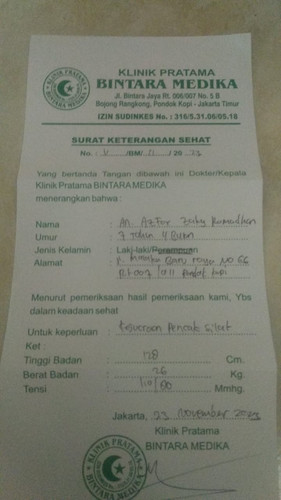 KLINIK PRATAMA
BINTARA MEDIKA
Jl. Bintara Jaya Rt. 006/007 No. 5 B
Bojong Rangkong, Pondok Kopi - Jakarta Timur
IZIN SUDINKES No. : 316/5.31.06/05.18
SURAT KETERANGAN SEHAT
No. : /BM/ /20 23
Yang bertanda Tangan dibawah ini Dokter/Kepala
Klinik Pratama BINTARA MEDIKA
menerangkan bahwa :
Nama : An. Zaky Ramadhan
Umur : 7 tahun 4 Bulan
Jenis Kelamin : Laki-laki/Perempuan
Alamat : Raya No 66
Rt 007
Menurut pemeriksaan hasil pemeriksaan kami, Ybs
dalam keadaan sehat
Untuk keperluan : Pencak Silat
Ket :
Tinggi Badan : 128 Cm.
Berat Badan : 26 Kg.
Tensi : 110/80 Mmhg.
Jakarta, 23 November 2023
Klinik Pratama
BINTARA MEDIKA
KLINIK PRATAMA
BINTARA MEDIKA